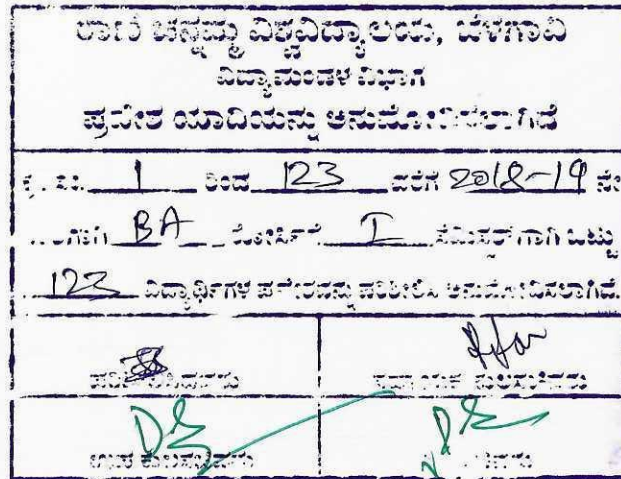 ರಾಣಿ ಚನ್ನಮ್ಮ ವಿಶ್ವವಿದ್ಯಾಲಯ, ಬೆಳಗಾವಿ
ವಿದ್ಯಾಮಂಡಳ ವಿಭಾಗ
ಪ್ರವೇಶ ಯಾದಿಯನ್ನು ಅನುಮೋದಿಸಲಾಗಿದೆ
ಕ್ರ. ಸಂ. 1 ರಿಂದ 123 ವರೆಗೆ 2018-19 ನೇ
BA ಕೋರ್ಸಿನ I ಸೆಮಿಸ್ಟರ್‌ಗಾಗಿ ಒಟ್ಟು
123 ವಿದ್ಯಾರ್ಥಿಗಳ ಪ್ರವೇಶವನ್ನು ಪರಿಶೀಲಿಸಿ ಅನುಮೋದಿಸಲಾಗಿದೆ.
ಸಹಾಯಕ ಕುಲಸಚಿವರು
ಉಪ ಕುಲಸಚಿವರು